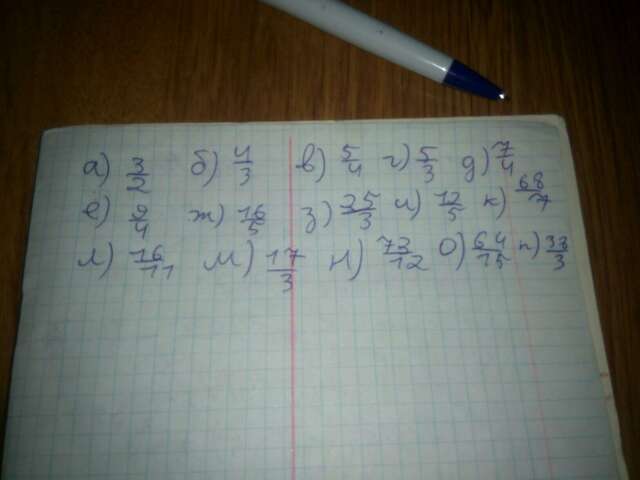 а) 3/2 б) 4/3 в) 5/4 г) 5/3 д) 7/4
е) 9/4 ж) 16/5 з) 25/3 и) 12/5 к) 68/7
л) 16/11 м) 17/3 н) 73/12 о) 64/15 п) 38/3